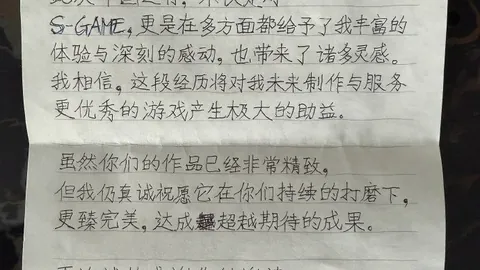 S-GAME，更是在多方面都给予了我丰富的
体验与深刻的感动，也带来了诸多灵感。
我相信，这段经历将对我未来制作与服务
更优秀的游戏产生极大的助益。
虽然你们的作品已经非常精致，
但我仍真诚祝愿它在你们持续的打磨下，
更臻完美，达成超越期待的成果。